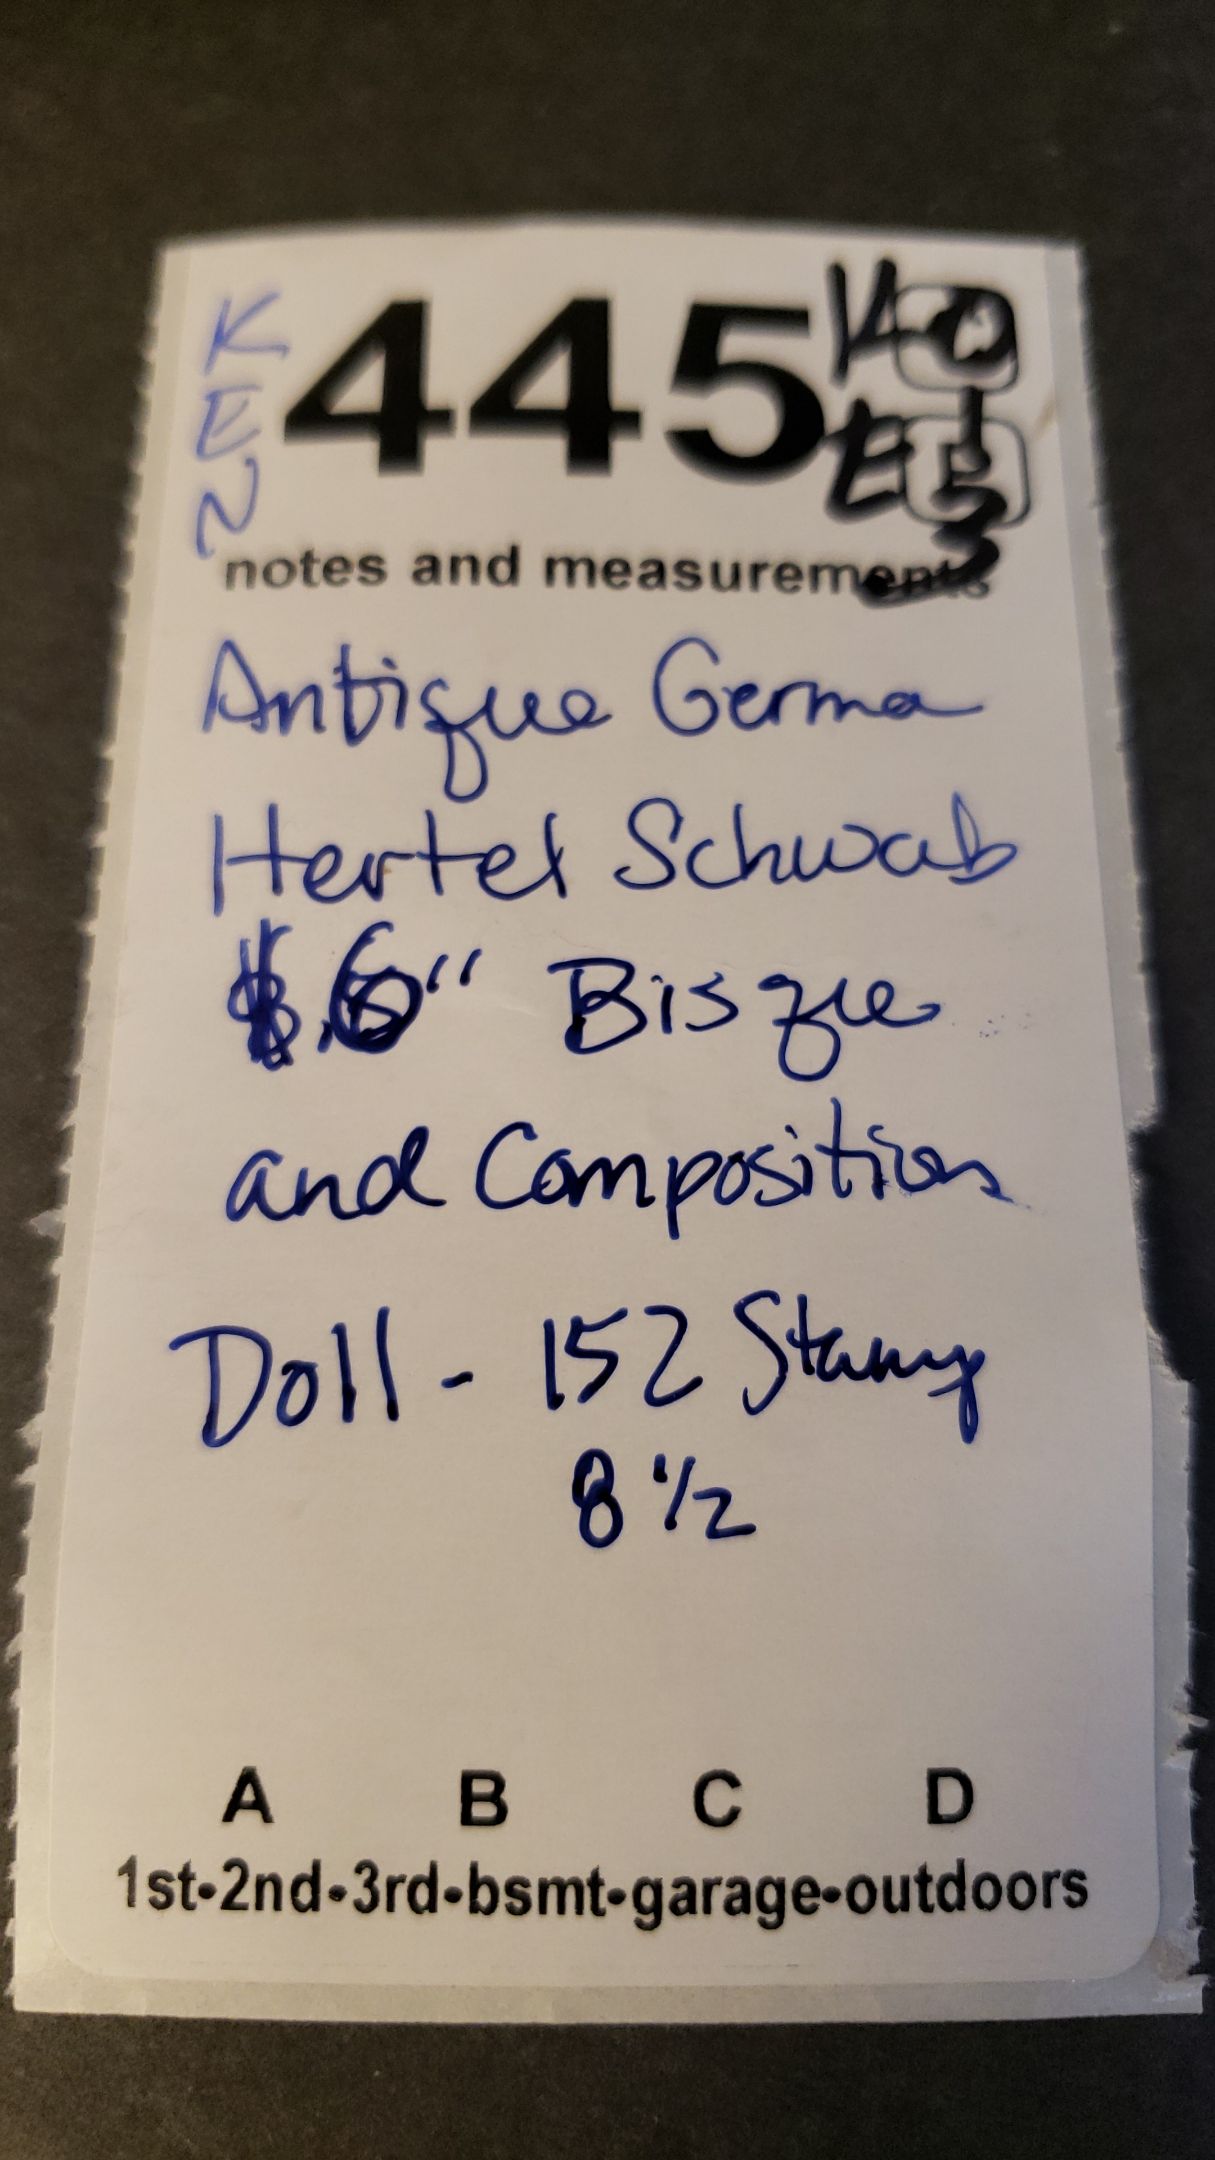 KEN
445
notes and measurements
Antique German
Hertel Schwab
" Bisque
and Composition
Doll - 152 Stamp
8 1/2
A B C D
1st•2nd•3rd•bsmt•garage•outdoors